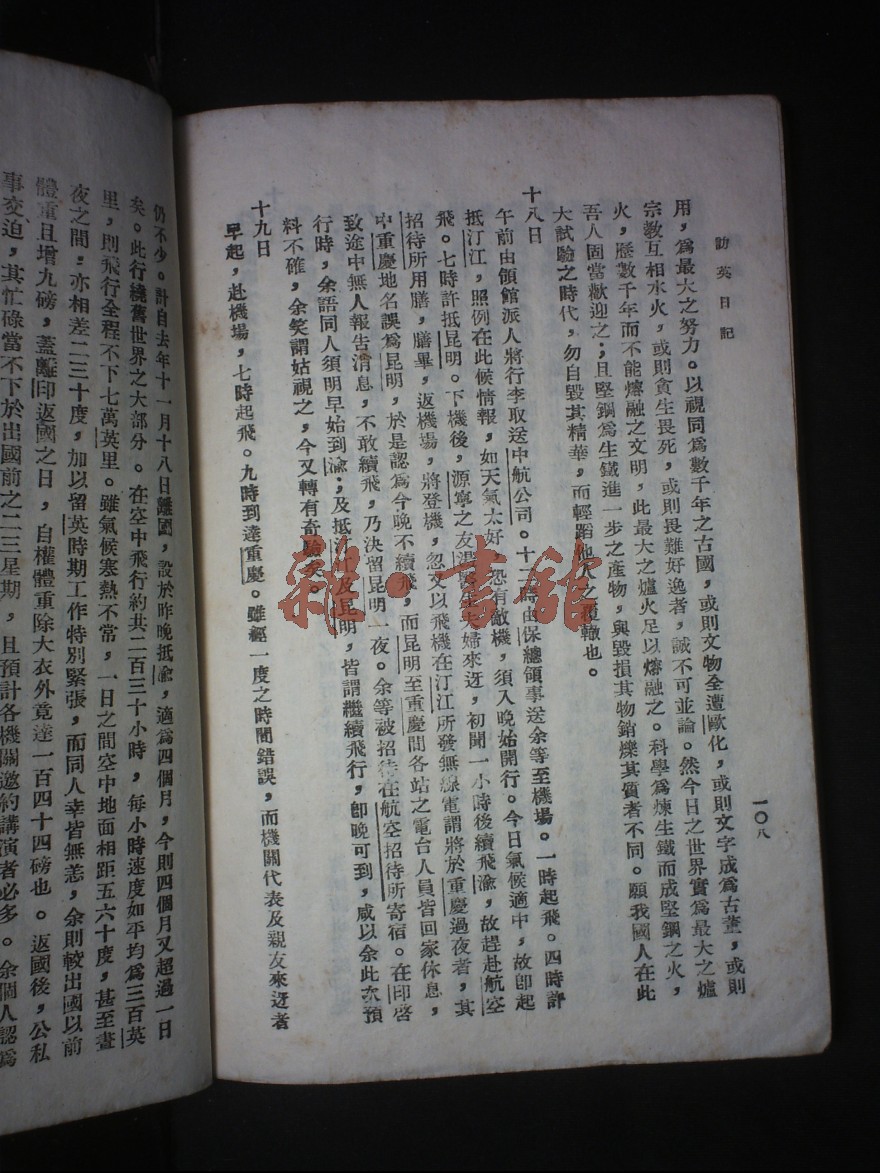 訪英日記
一〇八
用，爲最大之努力。以視同爲數千年之古國，或則文物全遭歐化，或則文字成爲古董，或則
宗教互相水火，或則貪生畏死，或則畏難好逸者，誠不可並論。然今日之世界實爲最大之爐
火，歷數千年而不能熔融之文明，此最大之爐火足以熔融之。科學爲煉生鐵而成堅鋼之火，
吾人固當歡迎之；且堅鋼爲生鐵進一步之產物，與毀損其物銷爍其質者不同。願我國人在此
大試驗之時代，勿自毀其精華，而輕蹈他人之覆轍也。
十八日
午前由領館派人將行李取送中航公司。十二時由保總領事送余等至機場。一時起飛。四時許
抵汀江，照例在此候情報，如天氣太好，恐有敵機，須入晚始開行。今日氣候適中，故卽起
飛。七時許抵昆明。下機後，源寧之友湯醫生夫婦來迓，初聞一小時後續飛渝，故趕赴航空
招待所用膳，膳畢，返機場，將登機，忽又以飛機在汀江所發無線電謂將於重慶過夜者，其
中重慶地名誤爲昆明，於是認爲今晚不續飛，而昆明至重慶間各站之電台人員皆回家休息，
致途中無人報告消息，不敢續飛，乃決留昆明一夜。余等被招待在航空招待所寄宿。在印啓
行時，余語同人須明早始到渝；及抵汀江及昆明，皆謂繼續飛行，卽晚可到，咸以余此次預
料不確，余笑謂姑視之，今又轉有奇驗矣。
十九日
早起，赴機場，七時起飛。九時到達重慶。雖經一度之時間錯誤，而機關代表及親友來迓者
仍不少。計自去年十一月十八日離國，設於昨晚抵渝，適爲四個月，今則四個月又超過一日
矣。此行繞舊世界之大部分。在空中飛行約共二百三十小時，每小時速度如平均爲三百英
里，則飛行全程不下七萬英里。雖氣候寒熱不常，一日之間空中地面相距五六十度，甚至晝
夜之間，亦相差二三十度，加以留英時期工作特別緊張，而同人幸皆無恙，余則較出國以前
體重且增九磅，蓋離印返國之日，自權體重除大衣外竟達一百四十四磅也。返國後，公私
事交迫，其忙碌當不下於出國前之二三星期，且預計各機關邀約講演者必多。余個人認爲
雜·書館